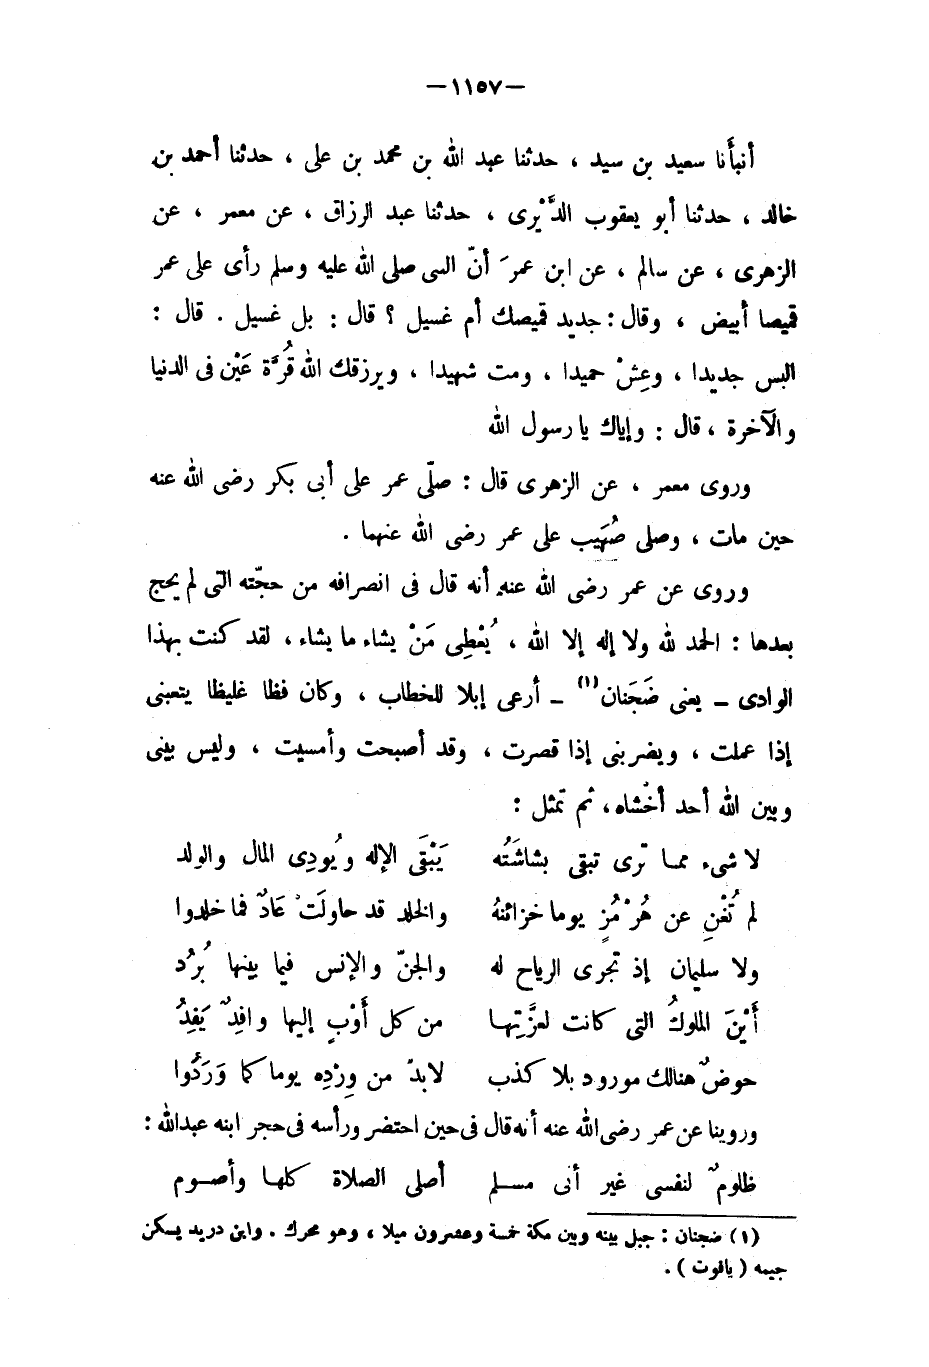 —١١٥٧—
أنبأنا سعيد بن سيد ، حدثنا عبد الله بن محمد بن على ، حدثنا أحمد بن
خالد ، حدثنا أبو يعقوب الدَّبْرى ، حدثنا عبد الرزاق ، عن معمر ، عن
الزهرى ، عن سالم ، عن ابن عمرَ أنّ النبى صلى الله عليه وسلم رأى على عمر
قميصا أبيض ، وقال : جديد قميصك أم غسيل ؟ قال : بل غسيل . قال :
البس جديدا ، وعِشْ حميدا ، ومت شهيدا ، ويرزقك الله قُرَّة عَيْن فى الدنيا
والآخرة ، قال : وإياك يا رسول الله
وروى معمر ، عن الزهرى قال : صلّى عمر على أبى بكر رضى الله عنه
حين مات ، وصلى صُهَيب على عمر رضى الله عنهما .
وروى عن عمر رضى الله عنه أنه قال فى انصرافه من حجّته التى لم يحج
بعدها : الحمد لله ولا إله إلا الله ، يُعْطِى مَنْ يشاء ما يشاء ، لقد كنت بهذا
الوادى – يعنى ضَجَنان(١) – أرعى إبلا للخطاب ، وكان فظا غليظا يتعبنى
إذا عملت ، ويضربنى إذا قصرت ، وقد أصبحت وأمسيت ، وليس بينى
وبين الله أحد أخْشاه، ثم تمثل :
لا شىء ممـا ترى تبقى بشاشَتُه يَبْقَى الإله ويُودِى المال والولد
لم تُغْنِ عن هُرْمُزٍ يوما خزائنهُ والخلد قد حاولَتْ عَادٌ فما خلدوا
ولا سليمان إذ تجرى الرياح له والجنّ والإنس فيما بينها بُرُد
أَيْنَ الملوكُ التى كانت لعزَّتِهـا من كل أَوْبٍ إليها وافدٌ يَفِدُ
حوضٌ هنالك مورود بلا كذب لابدّ من وِرْدِه يوما كما وَرَدُوا
وروينا عن عمر رضى الله عنه أنه قال فى حين احتضر ورأسه فى حجر ابنه عبدالله :
ظلومٌ لنفسى غير أنى مســلم أصلى الصلاة كلهـا وأصــوم
(١) ضجنان : جبل بينه وبين مكة خمسة وعشرون ميلا ، وهو محرك . وابن دريد يسكن
جيمه ( ياقوت ) .